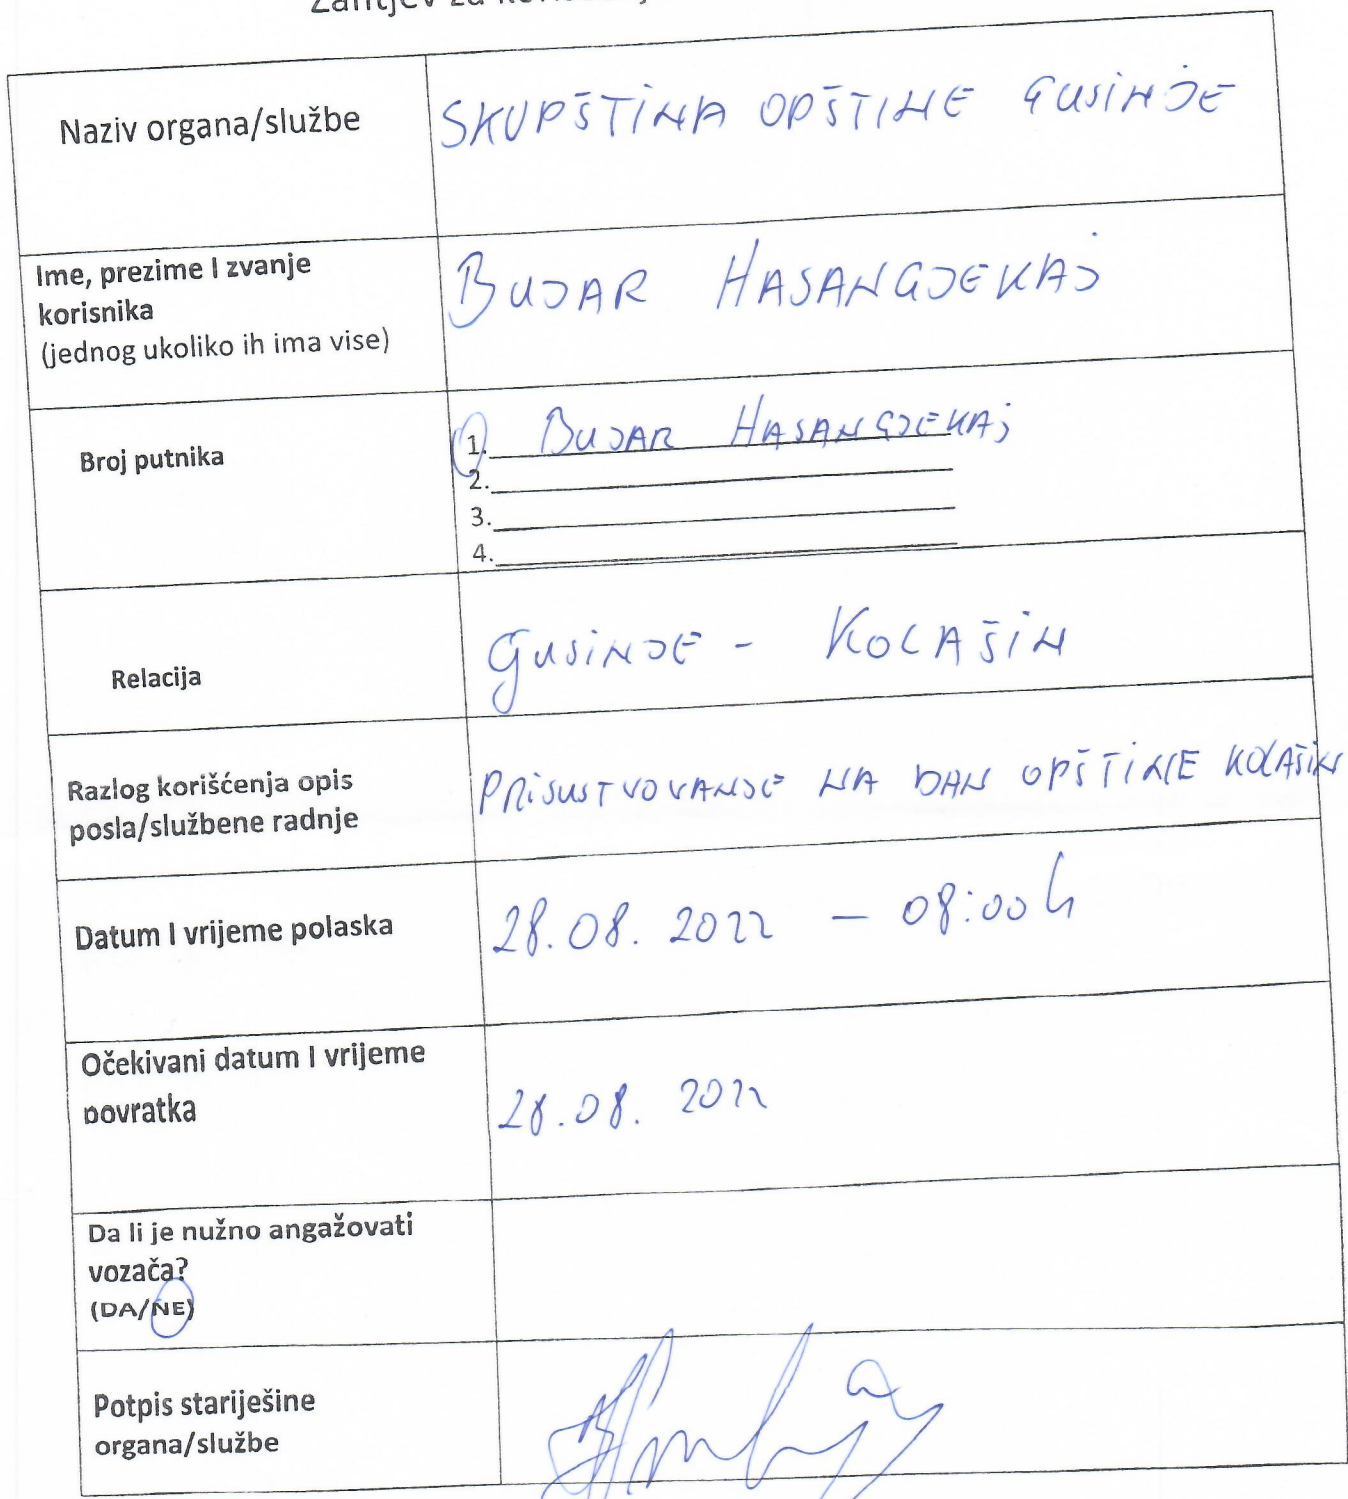 Zahtjev za
Naziv organa/službe
SKUPŠTINA OPŠTINE GUSINJE
Ime, prezime I zvanje
korisnika
(jednog ukoliko ih ima vise)
BUJAR HASANGJEKAJ
Broj putnika
1. BUJAR HASANGJEKAJ
2.
3.
4.
Relacija
GUSINJE - KOLAŠIN
Razlog korišćenja opis
posla/službene radnje
PRISUSTVOVANJE NA DAN OPŠTINE KOLAŠIN
Datum I vrijeme polaska
28.08. 2022 - 08:00 h
Očekivani datum I vrijeme
povratka
28.08. 2022
Da li je nužno angažovati
vozača?
(DA/NE)
Potpis starješine
organa/službe